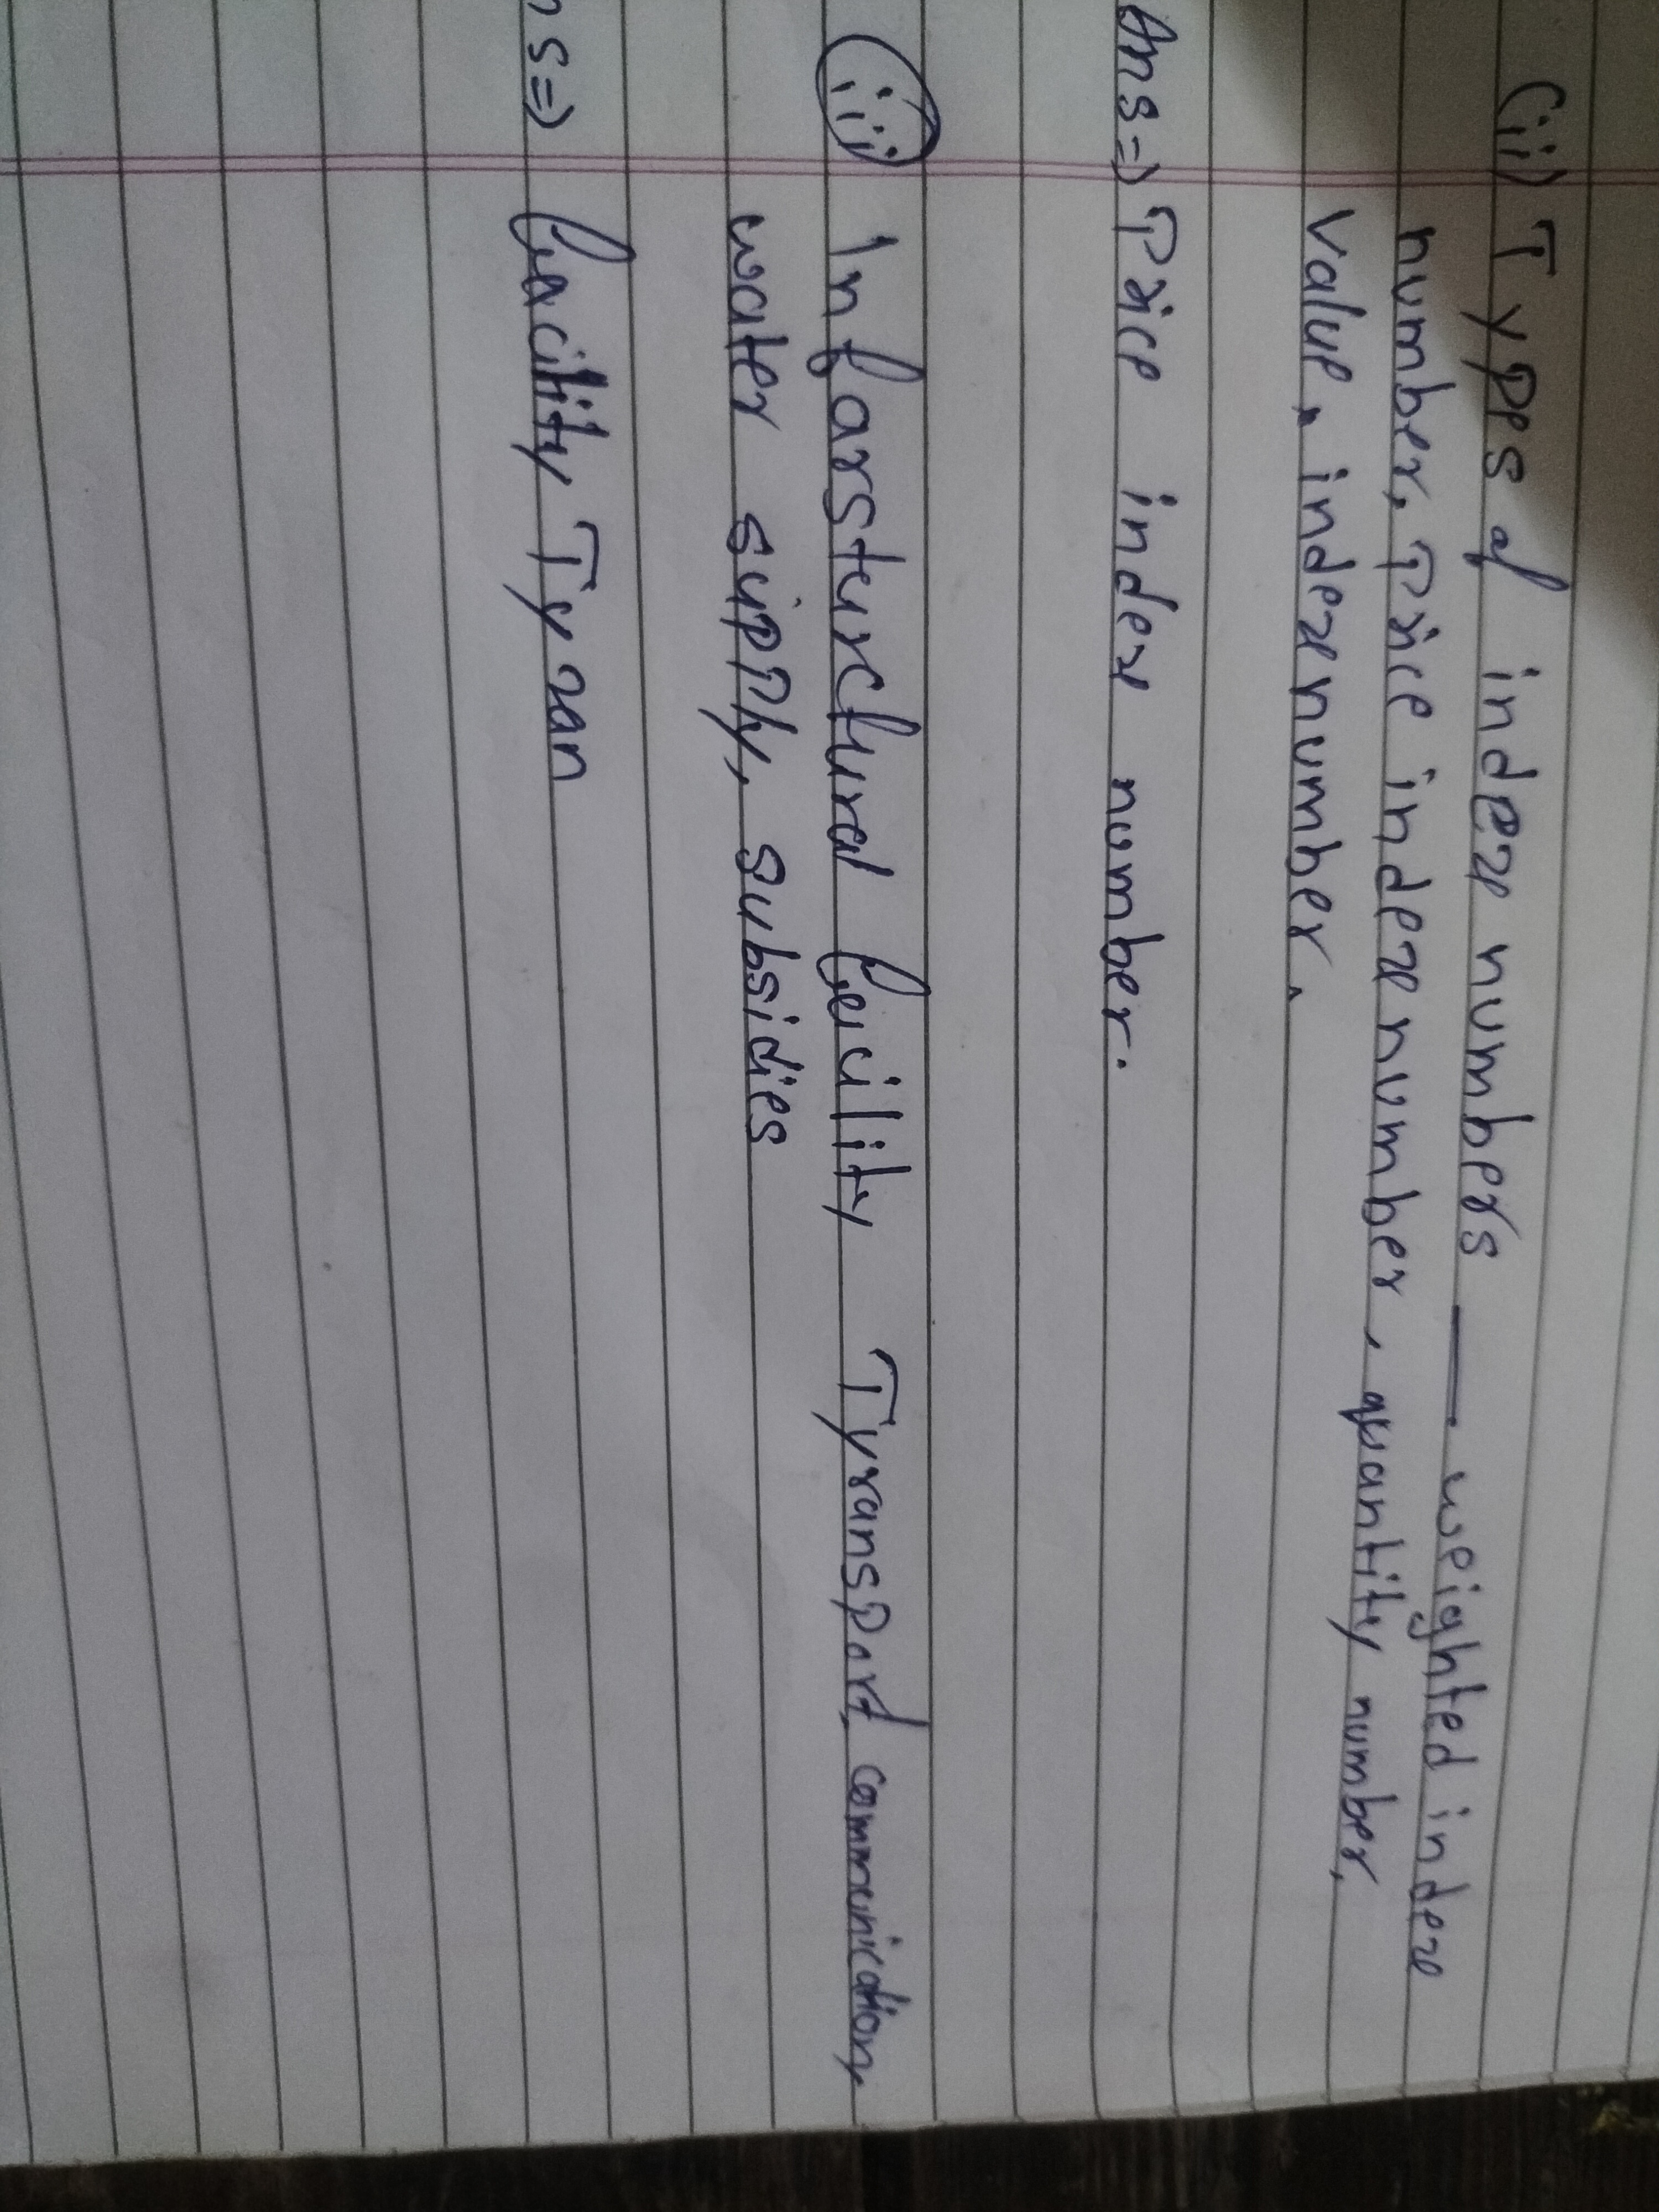 (ii) Types of index numbers — weighted index
number, Price index number, quantity number,
value, index number.
Ans => Price index number.
(iii) Infarsturctural facility Tyransport, communication,
water supply, subsidies
ns => facility Ty ran